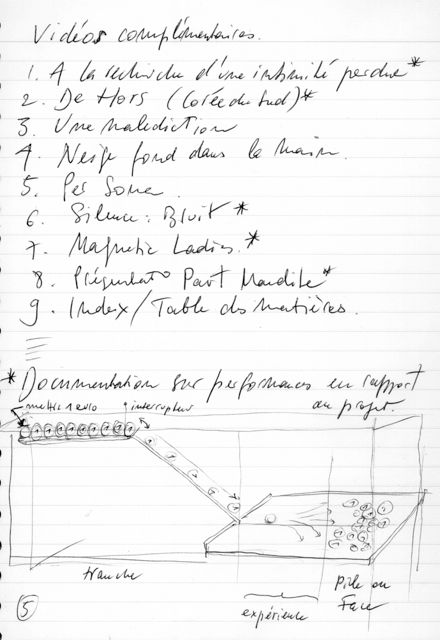 Vidéos complémentaires.
1. A la recherche d'une intimité perdue*
2. De Hors (Corée du Sud)*
3. Une malediction
4. Neige fond dans la main.
5. Per Sona
6. Silence : Bruit *
7. Magnetic Ladies. *
8. Part Maudite*
9. Index/Table des matières.
* Documentation sur performances en rapport
au projet.
mettre 1 euro interrupteur
tranche
expérience
Pile ou
Face
5